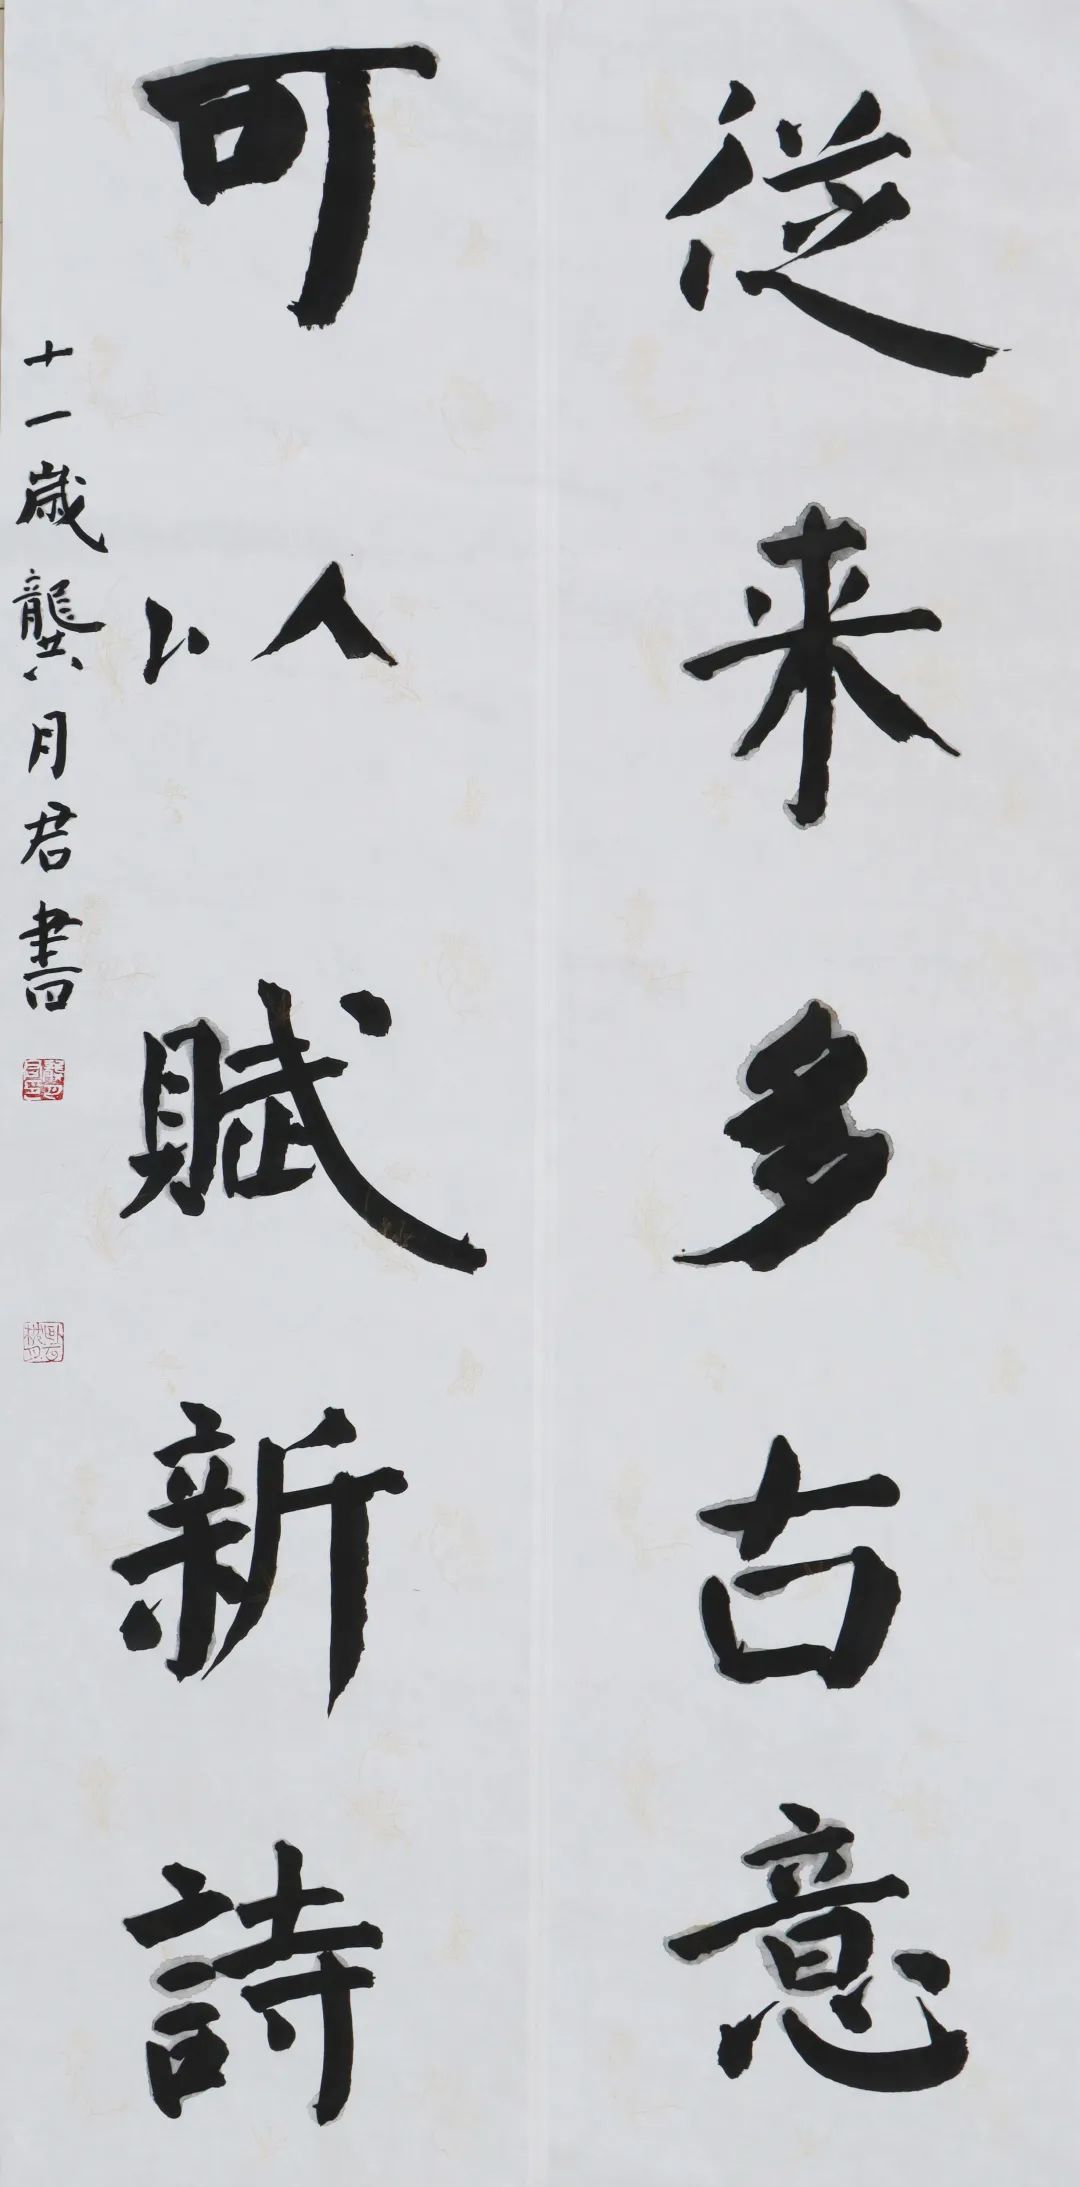 從来多古意
可以賦新詩
十一歲龔月君書